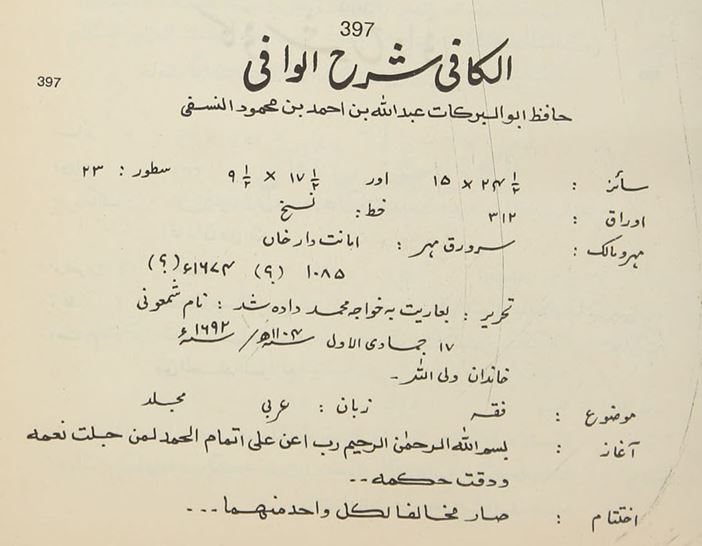 397
الکافی شرح الوافی
397
حافظ ابوالبرکات عبداللہ بن احمد بن محمود النسفی
سائز : ۲۴ ۱/۲ × ۱۵ اور ۱۷ ۱/۲ × ۹ ۱/۲ سطور : ۲۳
اوراق : ۳۱۲ خط : نسخ
مہرومالک : سرورق مہر : ابانت دار خاں
۱۰۸۵ (؟) ۱۶۷۴ء (؟)
تحریر : بعاریت بہ خواجہ محمد دادہ شد : نام شمعونی
۱۷ جمادی الاول سنہ ۱۱۰۴ھ / سنہ ۱۶۹۲ء
خاندان ولی اللہ۔
موضوع : فقہ زبان : عربی مجلد
آغاز : بسم اللہ الرحمٰن الرحیم رب اعن علی اتمام الحمد لمن جلت نعمہ
ودقت حکمہ ۔۔
اختتام : صار مخالفا لکل واحد منھما ۔۔۔